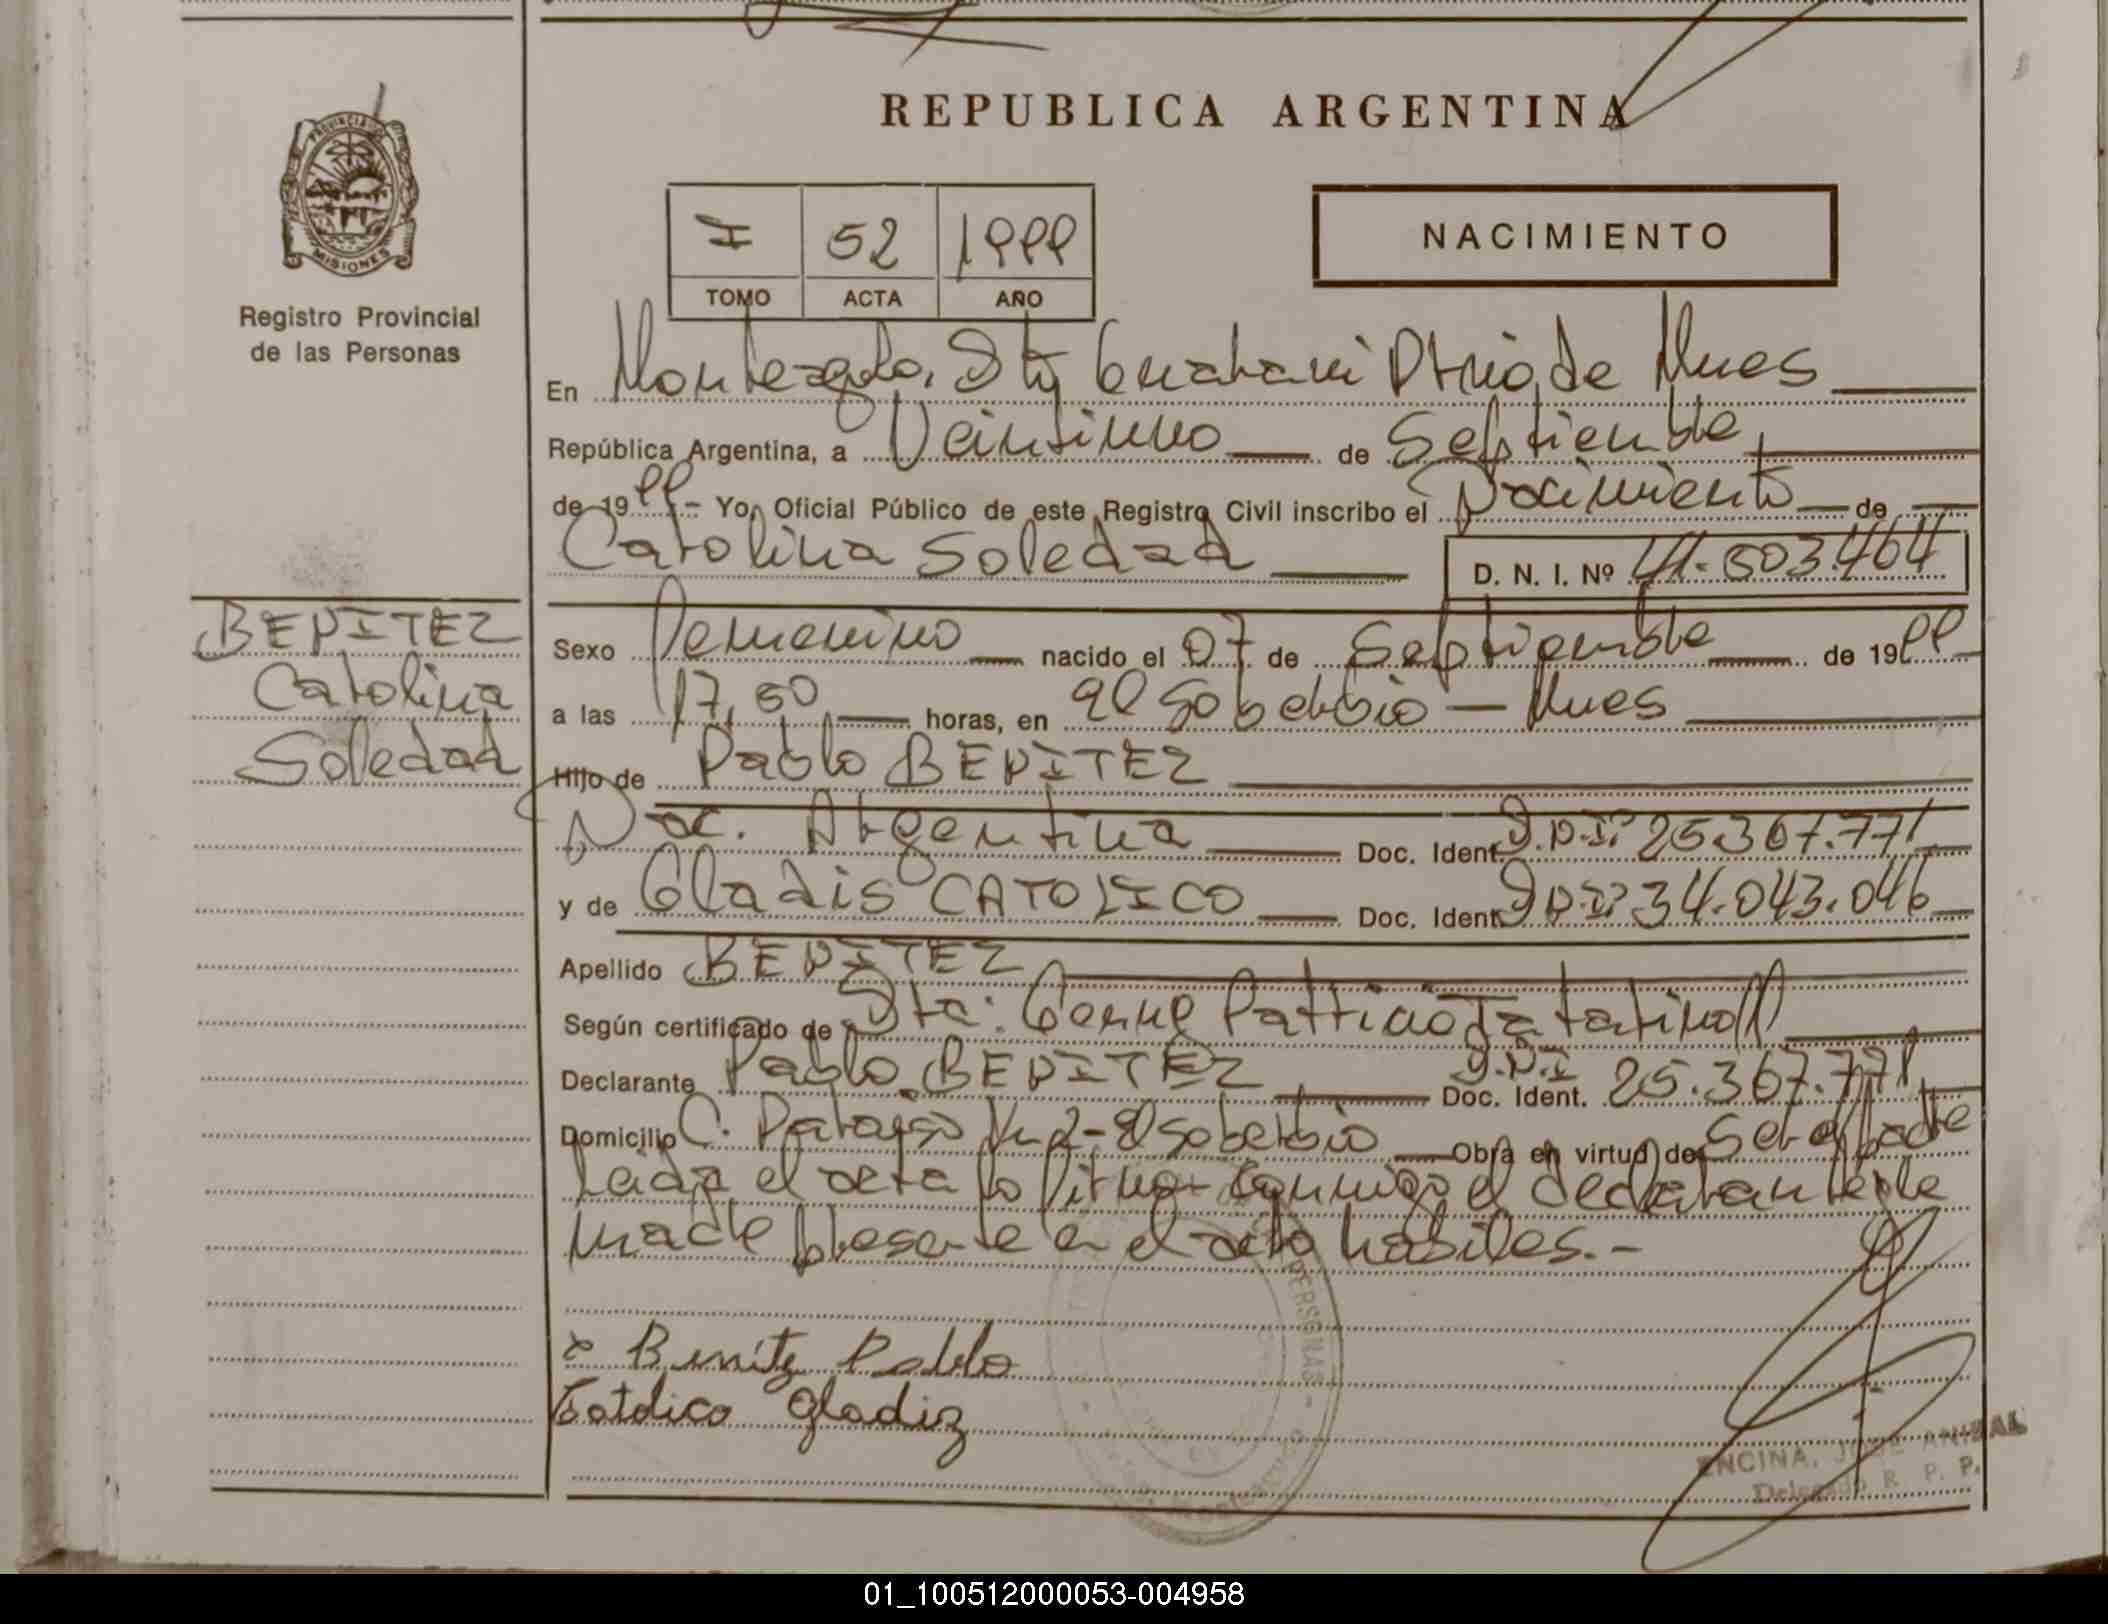 REPUBLICA ARGENTINA
PROVINCIA DE
MISIONES
Registro Provincial
de las Personas
I 52 1999
TOMO ACTA AÑO
NACIMIENTO
En Monteagudo, Guarani de
República Argentina, a Veintiuno de Septiembre
de 1999 - Yo, Oficial Público de este Registro Civil inscribo el Nacimiento de
Carolina Soledad D. N. I. Nº 41.503.464
BENITEZ
Carolina
Soledad
Sexo Femenino nacido el 07 de Septiembre de 1999
a las 17,50 horas, en El Soberbio - Mnes
Hijo de Pablo BENITEZ
Nac. Argentina Doc. Ident. D.N.I. 25.367.771
y de Gladis CATOLICO Doc. Ident. D.N.I. 34.043.046
Apellido BENITEZ
Según certificado de
Declarante Pablo BENITEZ Doc. Ident. D.N.I 25.367.771
Domicilio C. Paraiso Km 2 - El Soberbio Obra en virtud de Ser el padre
Leida el acta la firman conmigo el declarante y la
madre presente en el acto habiles. -
x Benitz Pablo
Catolico Gladiz
PERSONAS
ENCINA, JOSE ANIBAL
Delegado R. P. P.
01_100512000053-004958